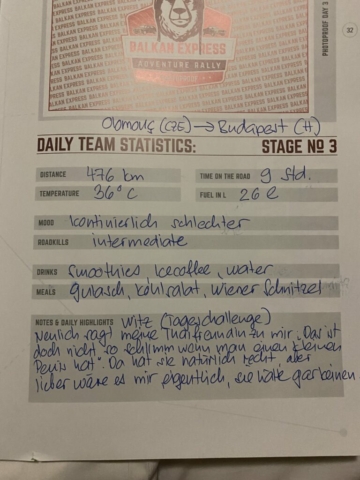 BALKAN EXPRESS
ADVENTURE RALLY
PHOTOPROOF DAY 3
32
Olomouc (CZE) → Budapest (H)
DAILY TEAM STATISTICS: STAGE Nº 3
DISTANCE 476 km TIME ON THE ROAD 9 Std.
TEMPERATURE 36°C FUEL IN L 26 l
MOOD kontinuierlich schlechter
ROADKILLS intermediate
DRINKS Smoothies, Icecoffee, water
MEALS Gulasch, Kohlsalat, Wiener Schnitzel
NOTES & DAILY HIGHLIGHTS Witz (Tageschallenge)
Neulich sagt meine Thaifreundin zu mir „Das ist
doch nicht so schlimm wenn man einen kleinen
Penis hat". Da hat sie natürlich recht, aber
lieber wäre es mir eigentlich, sie hätte gar keinen